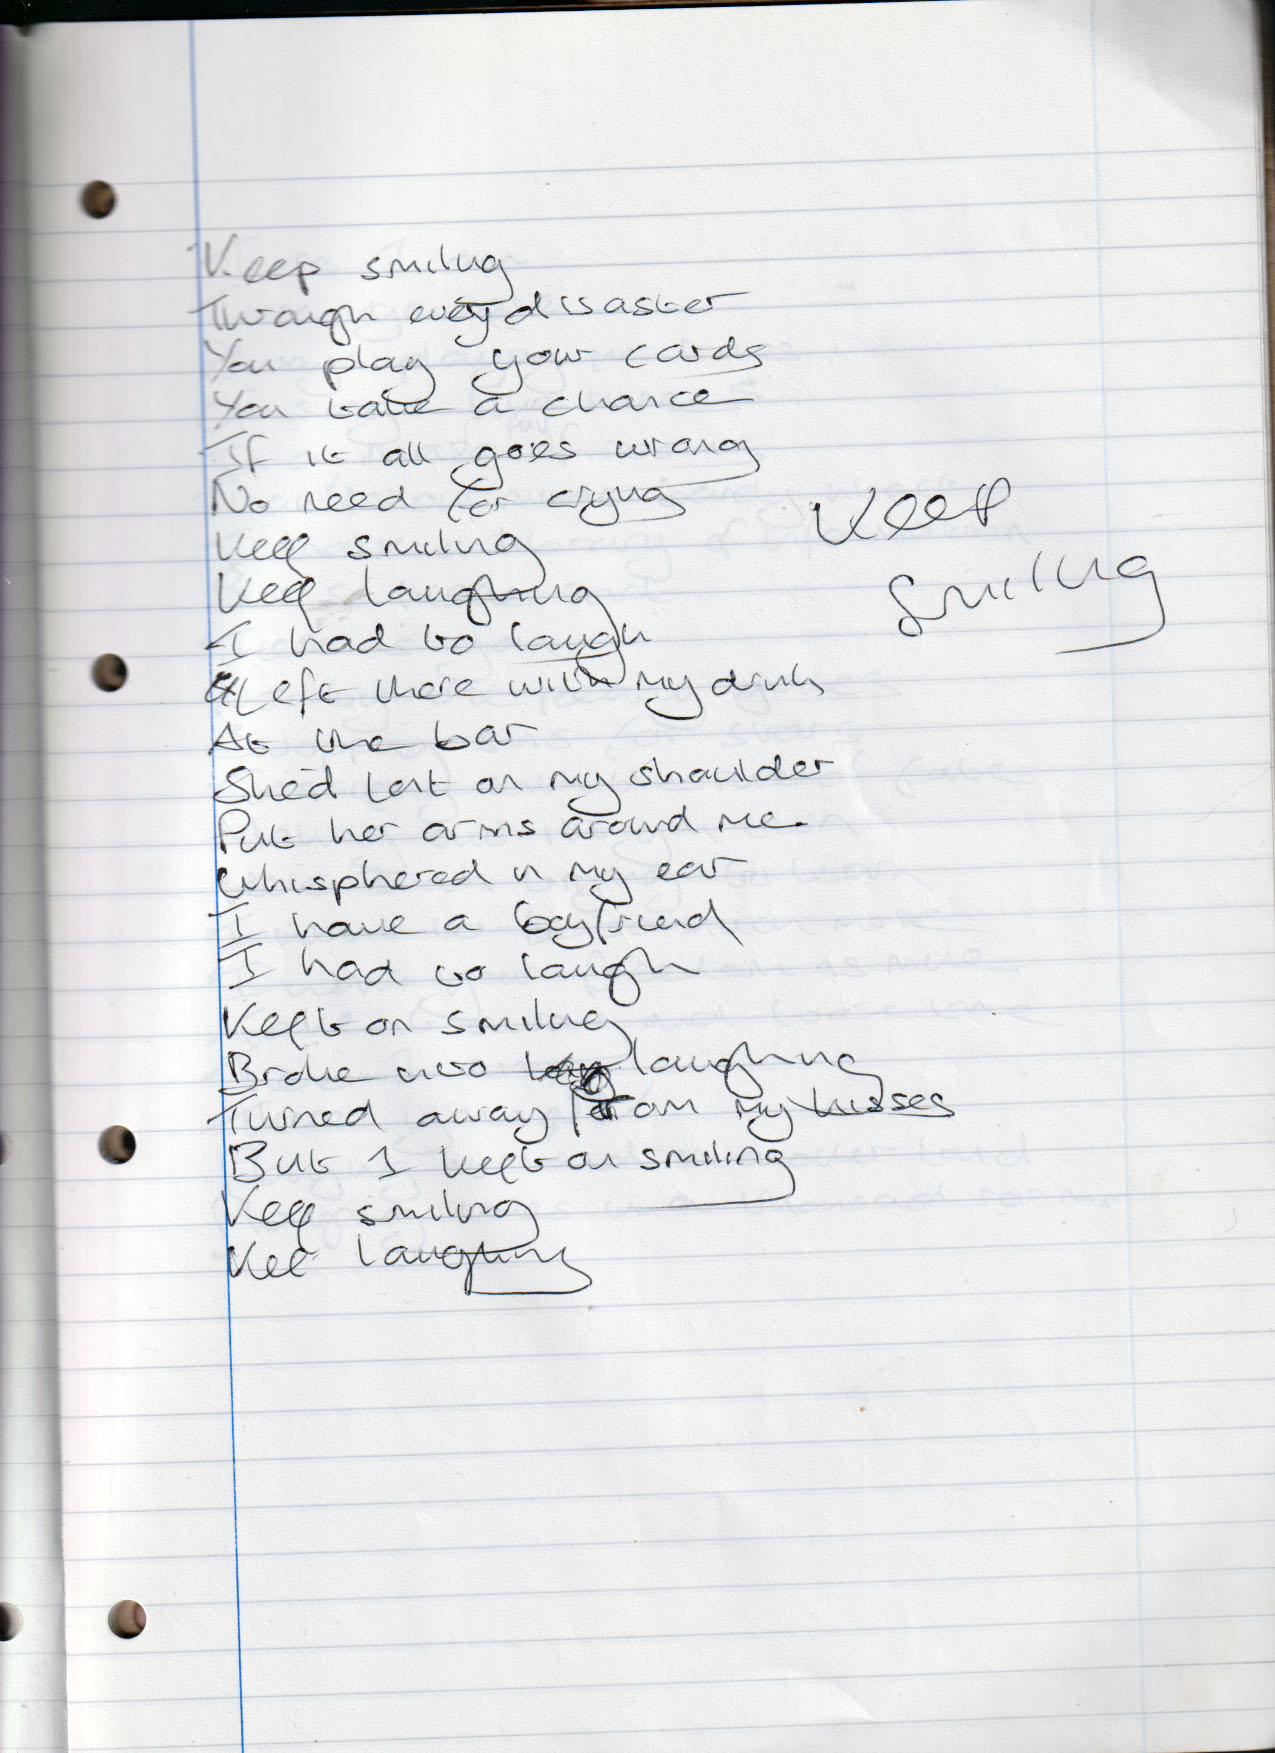 Keep smiling
Through every disaster
You play your cards
You take a chance
If it all goes wrong
No need for crying
Keep smiling
Keep laughing
I had to laugh
Left there with my drink
At the bar
She'd lent on my shoulder
Put her arms around me.
Whisphered in my ear
I have a boyfriend
I had to laugh
Kept on smiling
Broke into laughing
Turned away from my kisses
But I kept on smiling
Keep smiling
Keep laughing
Keep
Smiling